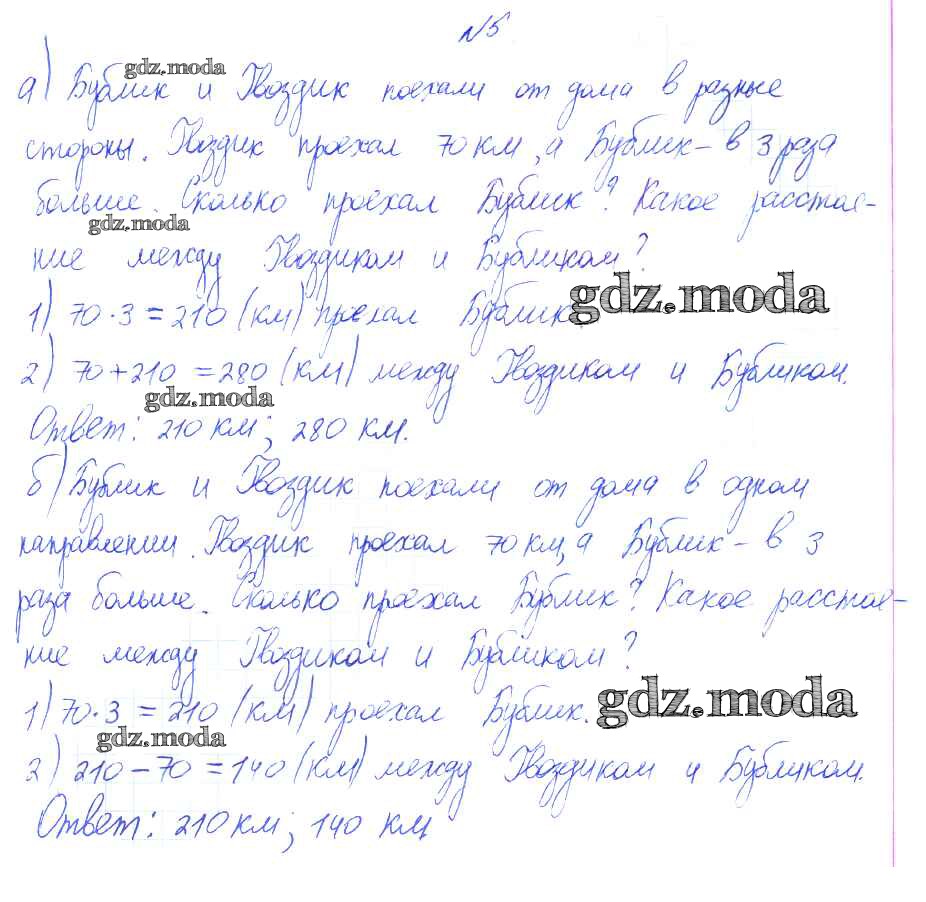 №5
gdz.moda
а) Бублик и Гвоздик поехали от дома в разные
стороны. Гвоздик проехал 70 км, а Бублик - в 3 раза
больше. Сколько проехал Бублик? Какое расстоя-
gdz.moda
ние между Гвоздиком и Бубликом?
1) 70 · 3 = 210 (км) проехал Бублик.
gdz.moda
2) 70 + 210 = 280 (км) между Гвоздиком и Бубликом.
gdz.moda
Ответ: 210 км; 280 км.
б) Бублик и Гвоздик поехали от дома в одном
направлении. Гвоздик проехал 70 км, а Бублик - в 3
раза больше. Сколько проехал Бублик? Какое расстоя-
ние между Гвоздиком и Бубликом?
1) 70 · 3 = 210 (км) проехал Бублик.
gdz.moda
gdz.moda
2) 210 - 70 = 140 (км) между Гвоздиком и Бубликом.
Ответ: 210 км; 140 км